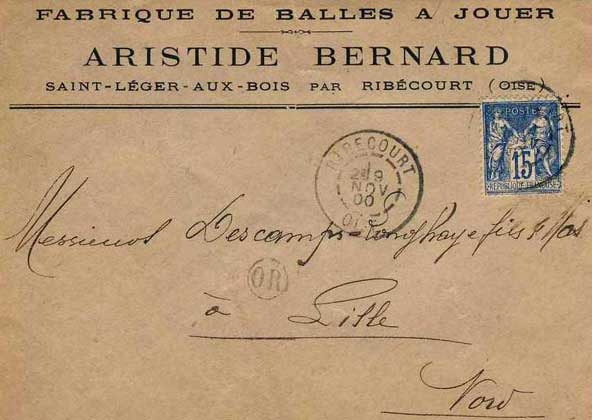 FABRIQUE DE BALLES A JOUER
ARISTIDE BERNARD
SAINT-LÉGER-AUX-BOIS PAR RIBÉCOURT (OISE)
POSTE
15
RÉPUBLIQUE FRANÇAISE
RIBECOURT
29
NOV
00
OISE
Messieurs Descamps-Longhaye fils &
OR
à Lille
Nord